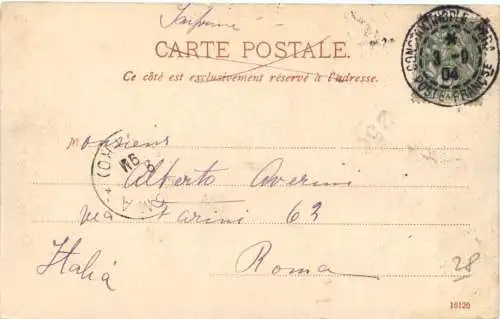 Imprimé
CARTE POSTALE.
Ce côté est exclusivement réservé à l'adresse.
CONSTANTINOPLE PERA
3-9
04
POSTE FRANÇSE
Monsieur
Alberto Averini
via Farini 62
Italiá
Roma
28
18120